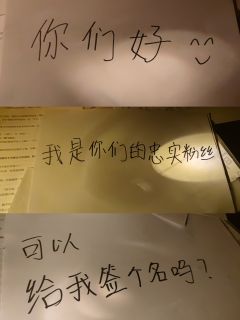 你们好
我是你们的忠实粉丝
可以
给我签个名吗？